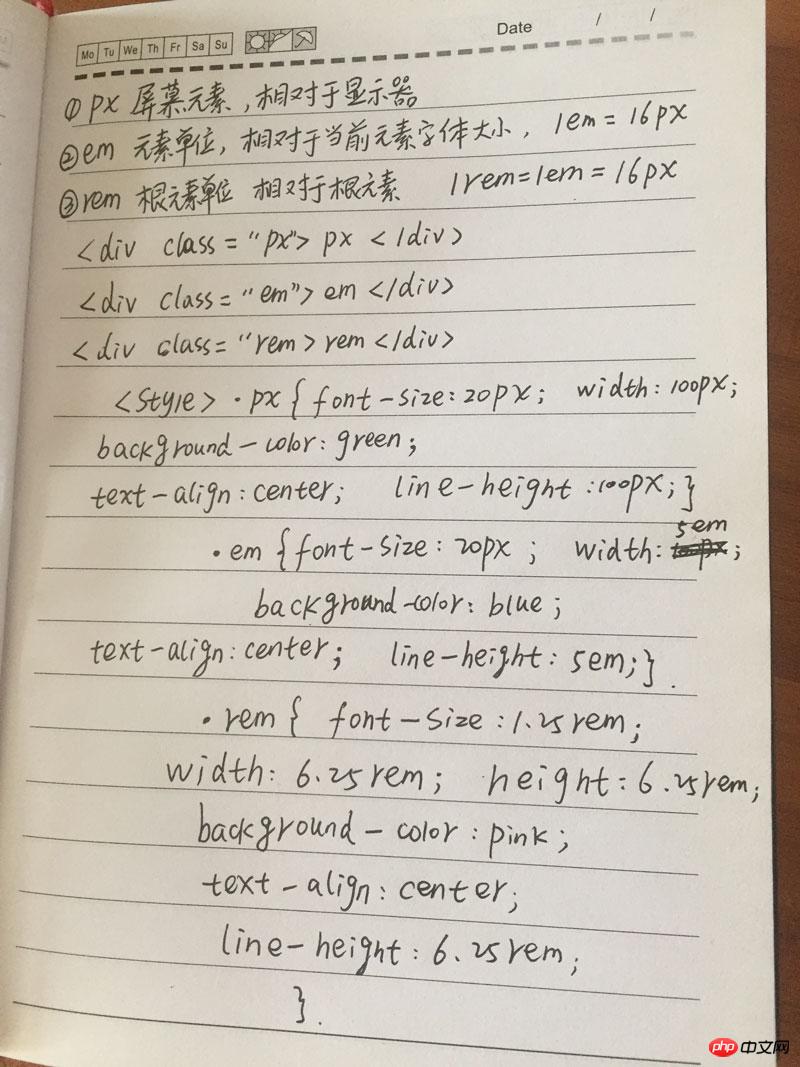 Mo Tu We Th Fr Sa Su
Date / /
① px 屏幕元素,相对于显示器
② em 元素单位,相对于当前元素字体大小, 1em = 16px
③ rem 根元素单位 相对于根元素 1rem=1em = 16px
<div class = "px"> px </div>
<div class = "em"> em </div>
<div class = "rem> rem </div>
<style> .px { font-size: 20px; width: 100px;
background-color: green;
text-align: center; line-height: 100px; }
.em {font-size: 20px ; width: 5em ;
background-color: blue ;
text-align: center ; line-height: 5em; } .
.rem { font-size : 1.25rem ;
width: 6.25rem; height: 6.25rem;
background-color : pink ;
text-align: center;
line-height: 6.25rem;
} .
php 中文网